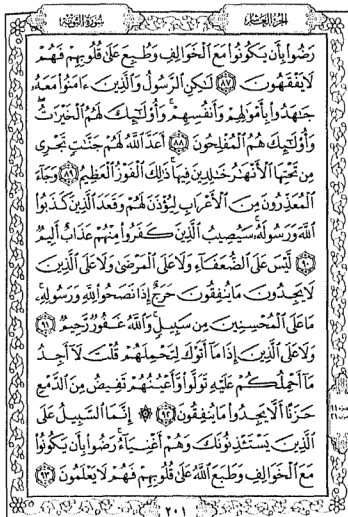 الجزء العاشر سورة التوبة
رَضُوا۟ بِأَن يَكُونُوا۟ مَعَ ٱلْخَوَالِفِ وَطُبِعَ عَلَىٰ قُلُوبِهِمْ فَهُمْ
لَا يَفْقَهُونَ ٨٧ لَٰكِنِ ٱلرَّسُولُ وَٱلَّذِينَ ءَامَنُوا۟ مَعَهُۥ
جَٰهَدُوا۟ بِأَمْوَٰلِهِمْ وَأَنفُسِهِمْ ۚ وَأُو۟لَٰٓئِكَ لَهُمُ ٱلْخَيْرَٰتُ ۖ
وَأُو۟لَٰٓئِكَ هُمُ ٱلْمُفْلِحُونَ ٨٨ أَعَدَّ ٱللَّهُ لَهُمْ جَنَّٰتٍ تَجْرِى
مِن تَحْتِهَا ٱلْأَنْهَٰرُ خَٰلِدِينَ فِيهَا ۚ ذَٰلِكَ ٱلْفَوْزُ ٱلْعَظِيمُ ٨٩ وَجَآءَ
ٱلْمُعَذِّرُونَ مِنَ ٱلْأَعْرَابِ لِيُؤْذَنَ لَهُمْ وَقَعَدَ ٱلَّذِينَ كَذَبُوا۟
ٱللَّهَ وَرَسُولَهُۥ ۚ سَيُصِيبُ ٱلَّذِينَ كَفَرُوا۟ مِنْهُمْ عَذَابٌ أَلِيمٌ
٩٠ لَّيْسَ عَلَى ٱلضُّعَفَآءِ وَلَا عَلَى ٱلْمَرْضَىٰ وَلَا عَلَى ٱلَّذِينَ
لَا يَجِدُونَ مَا يُنفِقُونَ حَرَجٌ إِذَا نَصَحُوا۟ لِلَّهِ وَرَسُولِهِۦ ۚ
مَا عَلَى ٱلْمُحْسِنِينَ مِن سَبِيلٍ ۚ وَٱللَّهُ غَفُورٌ رَّحِيمٌ ٩١
وَلَا عَلَى ٱلَّذِينَ إِذَا مَآ أَتَوْكَ لِتَحْمِلَهُمْ قُلْتَ لَآ أَجِدُ
مَآ أَحْمِلُكُمْ عَلَيْهِ تَوَلَّوا۟ وَّأَعْيُنُهُمْ تَفِيضُ مِنَ ٱلدَّمْعِ
حَزَنًا أَلَّا يَجِدُوا۟ مَا يُنفِقُونَ ٩٢ ۞ إِنَّمَا ٱلسَّبِيلُ عَلَى
ٱلَّذِينَ يَسْتَـْٔذِنُونَكَ وَهُمْ أَغْنِيَآءُ ۚ رَضُوا۟ بِأَن يَكُونُوا۟
مَعَ ٱلْخَوَالِفِ وَطَبَعَ ٱللَّهُ عَلَىٰ قُلُوبِهِمْ فَهُمْ لَا يَعْلَمُونَ ٩٣
٢٠١